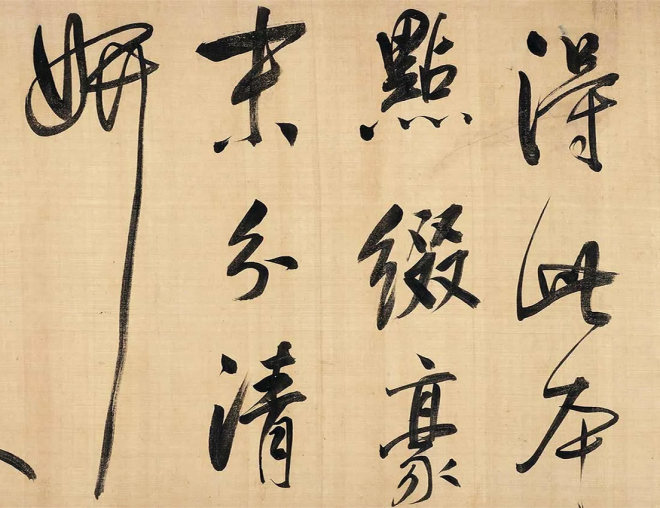 得此本
點綴豪
末分清
妍